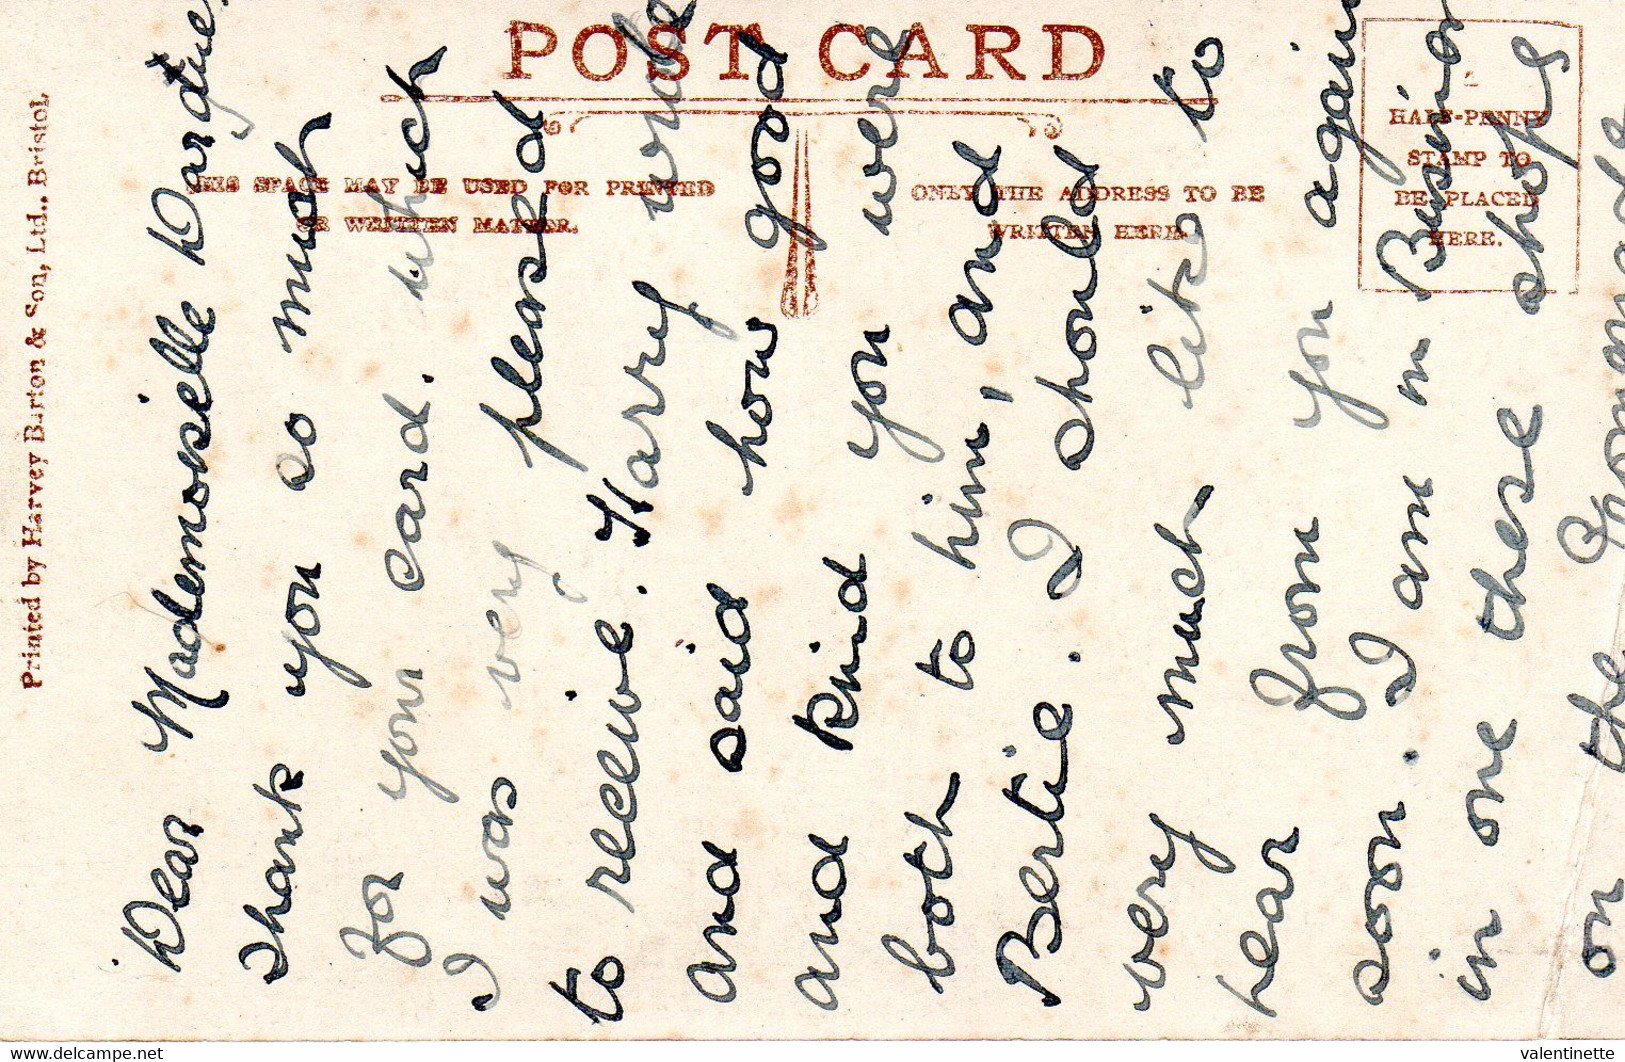 POST CARD
THIS SPACE MAY BE USED FOR PRINTED
OR WRITTEN MATTER.
ONLY THE ADDRESS TO BE
WRITTEN HERE.
HALF-PENNY
STAMP TO
BE PLACED
HERE.
Printed by Harvey Barton & Son, Ltd., Bristol.
Dear Mademoiselle
Thank you so much
for your card. which
I was very pleased
to receive. Harry wrote
and said how good
and kind you were
both to him, and
Bertie. I should
very much like to
hear from you again
soon. I am in Business
in one these shops
on the Promenade
delcampe.net
valentinette